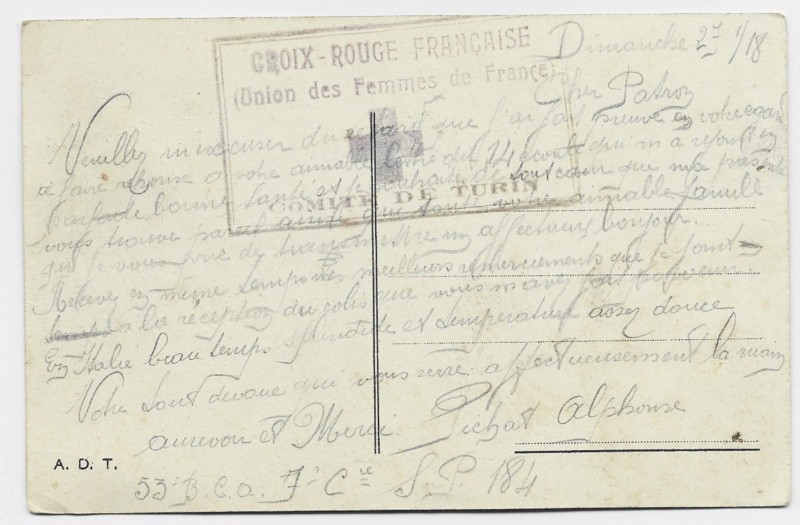 CROIX-ROUGE FRANÇAISE
(Union des Femmes de France)
COMITÉ DE TURIN
Dimanche 27 1/18
Cher Patron
Veuillez m'excuser du retard que j'ai fait preuve en votre égard
à faire réponse à votre aimable lettre du 14 écoulé qui m'a rejoint en
parfaite bonne santé et je souhaite de tout cœur que ma présente
vous trouve pareil ainsi que toute votre aimable famille
que je vous prie de transmettre un affectueux bonjour.
Recevez en même temps mes meilleurs remerciements que je
à la réception du colis que vous m'avez fait parvenir.
En Italie beau temps splendide et température assez douce
Votre tout dévoué qui vous serre affectueusement la main
aurevoir et Merci. Pichat Alphonse
A. D. T.
53 B.C.A. 7 Cie S.P. 184